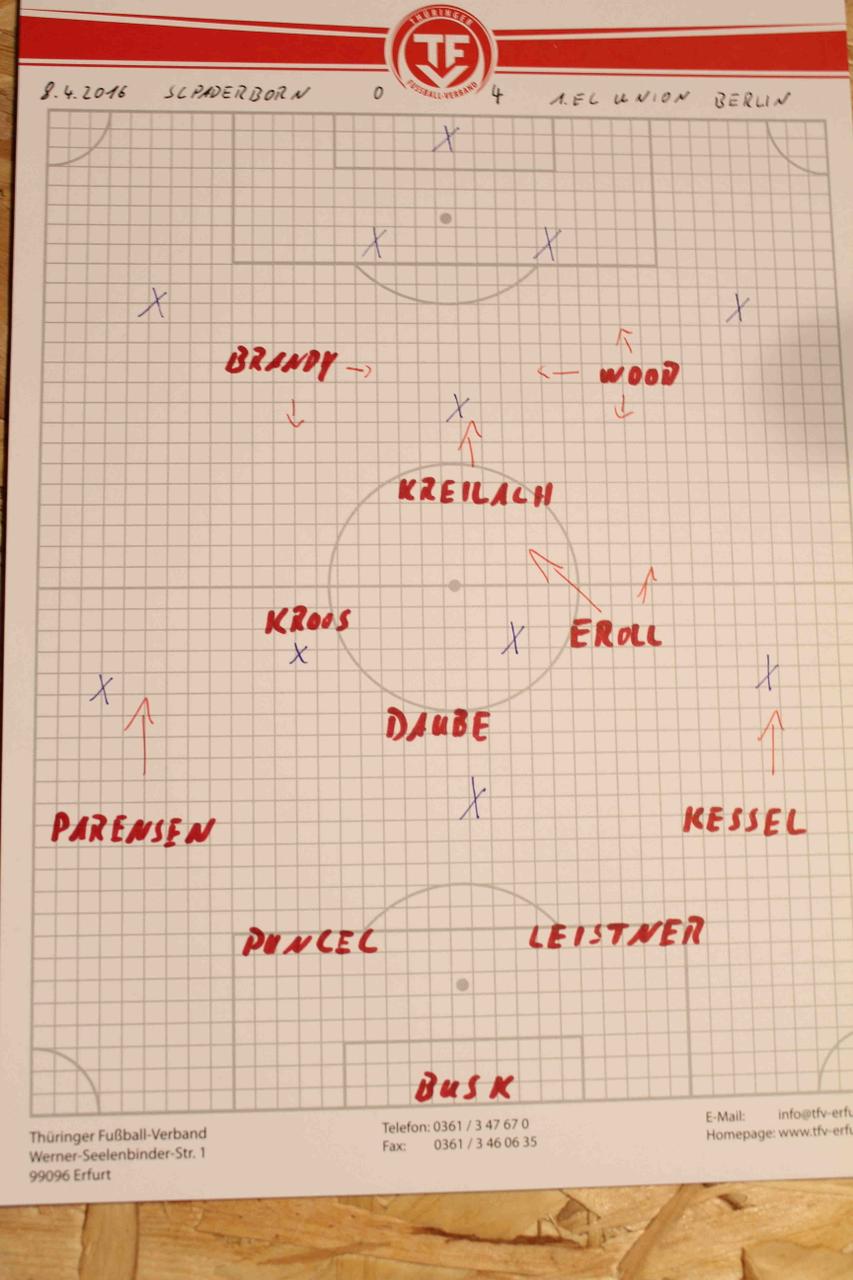 THÜRINGER
TF
V
FUSSBALL-VERBAND
8.4.2016 SCPADERBORN 0 4 1.FC UNION BERLIN
BRANDY WOOD
KREILACH
KROOS EROLL
DAUBE
PARENSEN KESSEL
PUNCEC LEISTNER
BUSK
Thüringer Fußball-Verband
Werner-Seelenbinder-Str. 1
99096 Erfurt
Telefon: 0361 / 3 47 67 0
Fax: 0361 / 3 46 06 35
E-Mail: info@tfv-erfu
Homepage: www.tfv-erfu